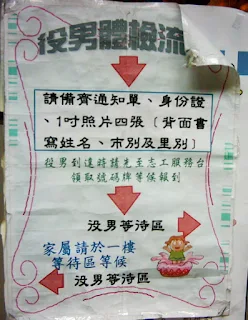 役男體檢流
請備齊通知單、身份證
、1吋照片四張〔背面書
寫姓名、市別及里別〕
役男到達時請先至志工服務台
領取號碼牌等候報到
役男等待區
家屬請於一樓
等待區等候
役男等待區